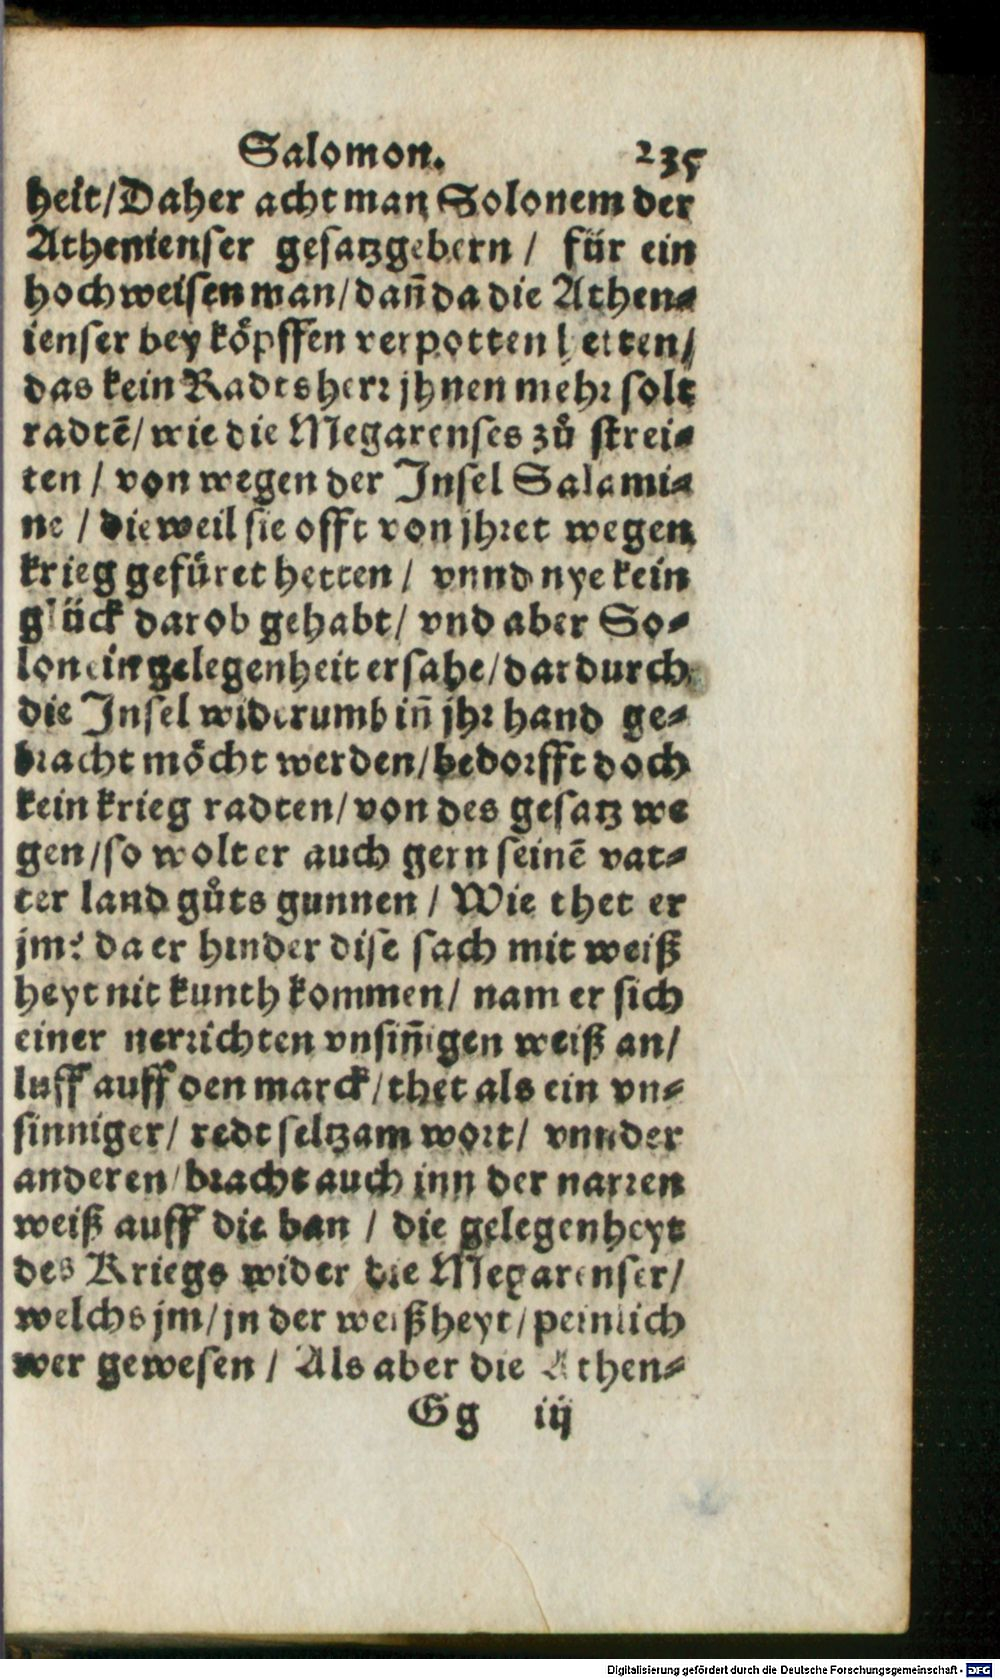 Salomon. 235
heit/Daher acht man Solonem der
Athenienser gesatzgebern / für ein
hochweisen man/dañ da die Athen⸗
ienser bey köpffen verpotten hetten/
das kein Radtsherr jhnen mehr solt
radtē/ wie die Megarenses zů strei⸗
ten / von wegen der Insel Salami⸗
ne / dieweil sie offt von jhret wegen
krieg gefüret hetten / vnnd nye kein
glück darob gehabt/ vnd aber So⸗
lon ein gelegenheit ersahe/dardurch
die Insel widerumb iñ jhr hand ge⸗
bracht möcht werden/bedorfft doch
kein krieg radten/von des gesatz we
gen/so wolt er auch gern seinē vat⸗
ter land gůts gunnen / Wie thet er
jm? da er hinder dise sach mit weiß
heyt nit kunth kommen/ nam er sich
einer nerrichten vnsiñigen weiß an/
luff auff den marck/thet als ein vn⸗
sinniger/ redt seltzam wort/ vnnder
anderen/bracht auch inn der narren
weiß auff die ban / die gelegenheyt
des Kriegs wider die Megarenser/
welchs jm/jn der weißheyt/peinlich
wer gewesen / Als aber die Athen⸗
Gg iij
Digitalisierung gefördert durch die Deutsche Forschungsgemeinschaft - DFG